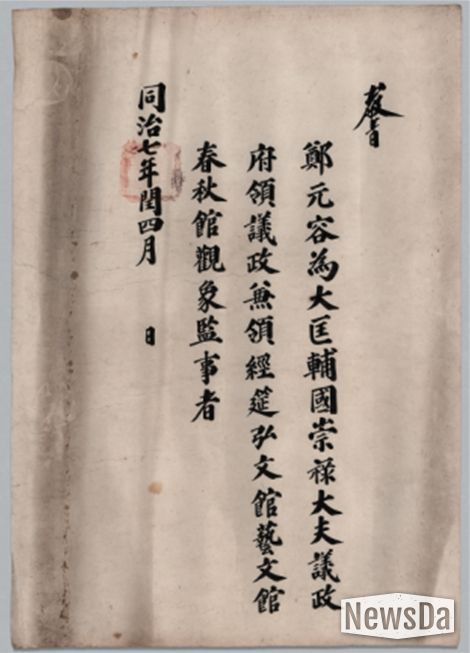 敎旨
鄭元容為大匡輔國崇祿大夫議政
府領議政兼領經筵弘文館藝文館
春秋館觀象監事者
同治七年閏四月 日
NewsDa